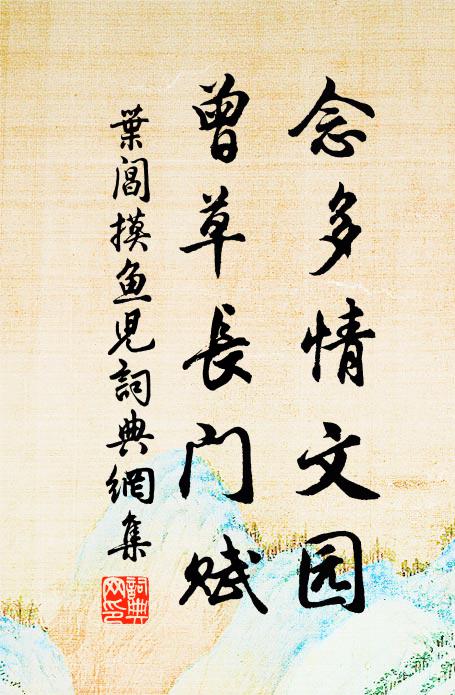 念多情文园
曾草長门赋
葉閶摸鱼児詞典網集
詞典网印